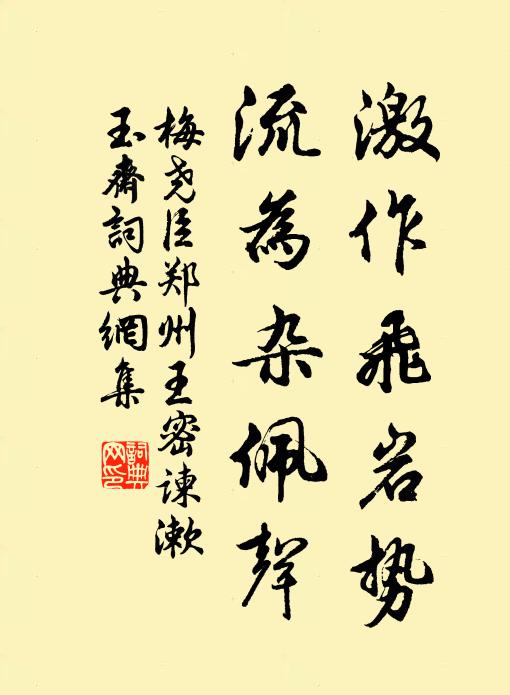 激作飛岩势
流為杂佩聲
梅尧臣郑州王密谏漱
玉齋詞典網集
詞典
网印